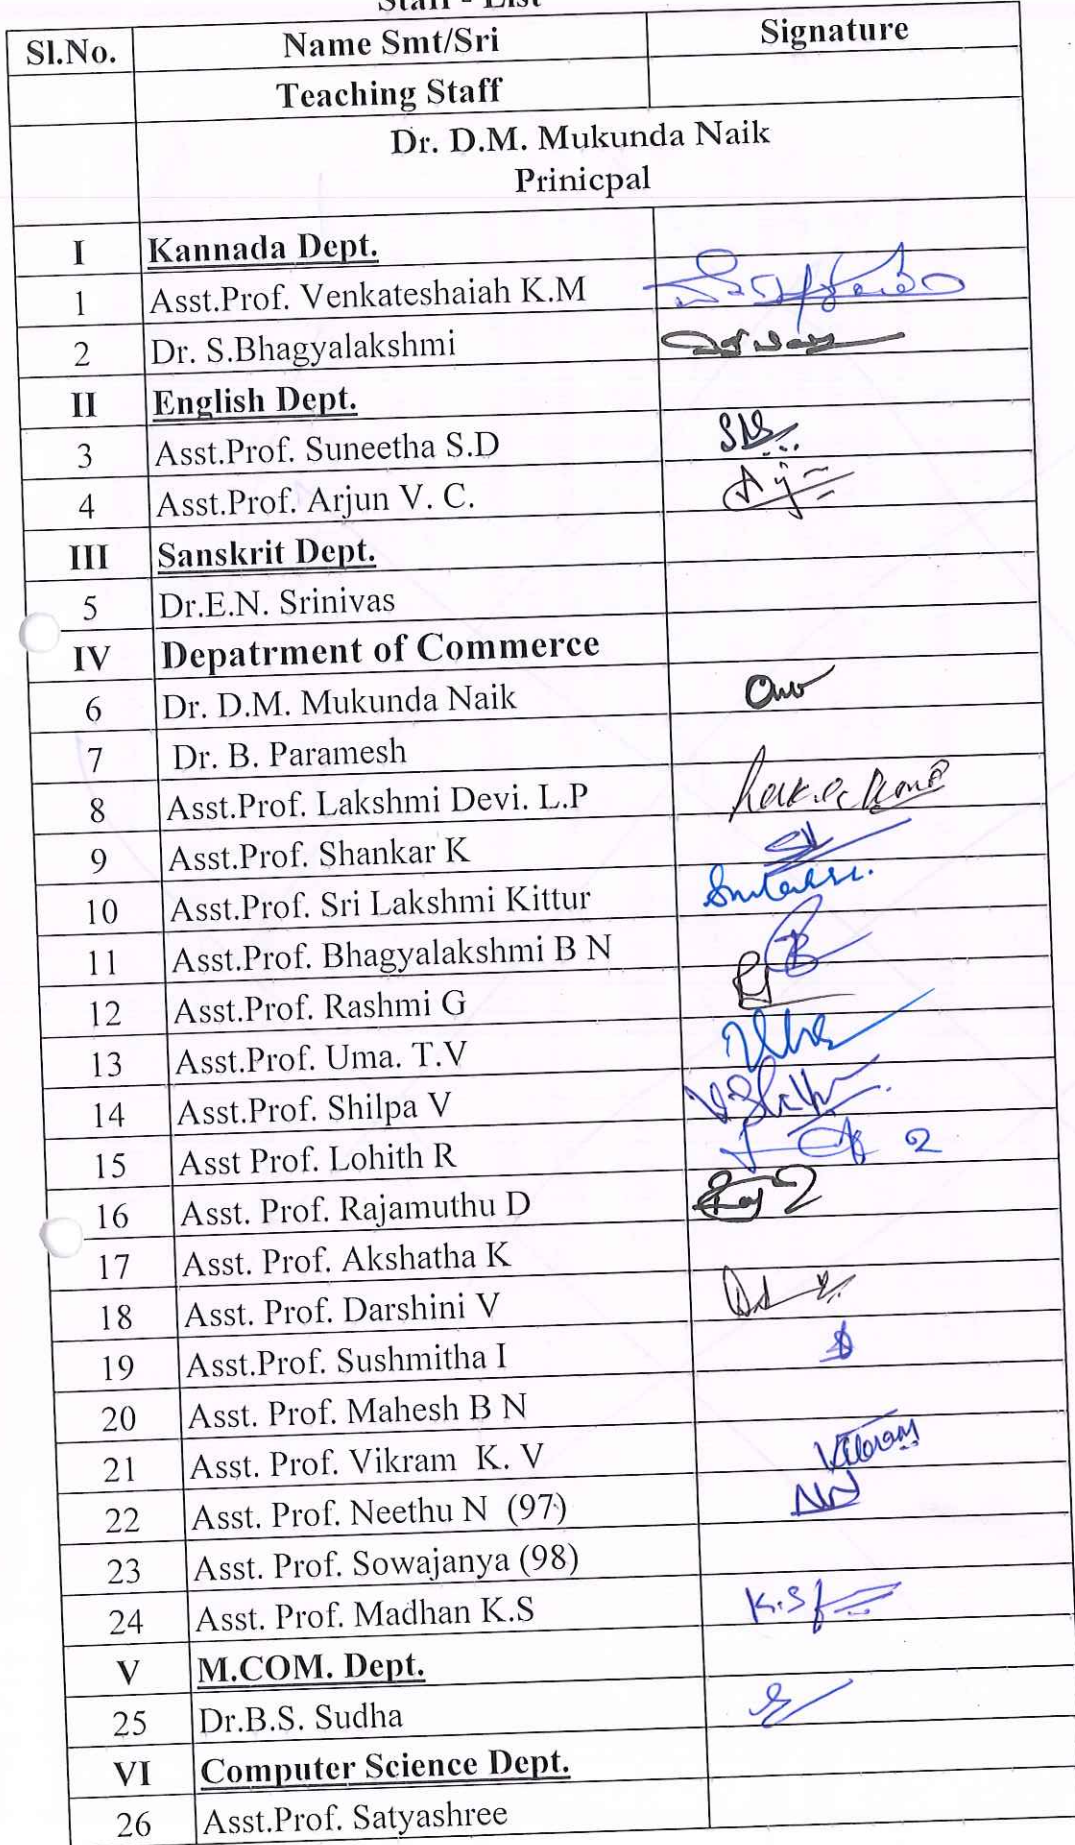 Staff - List
Sl.No. Name Smt/Sri Signature
Teaching Staff
Dr. D.M. Mukunda Naik
Prinicpal
I Kannada Dept.
1 Asst.Prof. Venkateshaiah K.M
2 Dr. S.Bhagyalakshmi
II English Dept.
3 Asst.Prof. Suneetha S.D
4 Asst.Prof. Arjun V. C.
III Sanskrit Dept.
5 Dr.E.N. Srinivas
IV Depatrment of Commerce
6 Dr. D.M. Mukunda Naik
7 Dr. B. Paramesh
8 Asst.Prof. Lakshmi Devi. L.P
9 Asst.Prof. Shankar K
10 Asst.Prof. Sri Lakshmi Kittur
11 Asst.Prof. Bhagyalakshmi B N
12 Asst.Prof. Rashmi G
13 Asst.Prof. Uma. T.V
14 Asst.Prof. Shilpa V
15 Asst Prof. Lohith R
16 Asst. Prof. Rajamuthu D
17 Asst. Prof. Akshatha K
18 Asst. Prof. Darshini V
19 Asst.Prof. Sushmitha I
20 Asst. Prof. Mahesh B N
21 Asst. Prof. Vikram K. V Vikram
22 Asst. Prof. Neethu N (97)
23 Asst. Prof. Sowajanya (98)
24 Asst. Prof. Madhan K.S
V M.COM. Dept.
25 Dr.B.S. Sudha
VI Computer Science Dept.
26 Asst.Prof. Satyashree